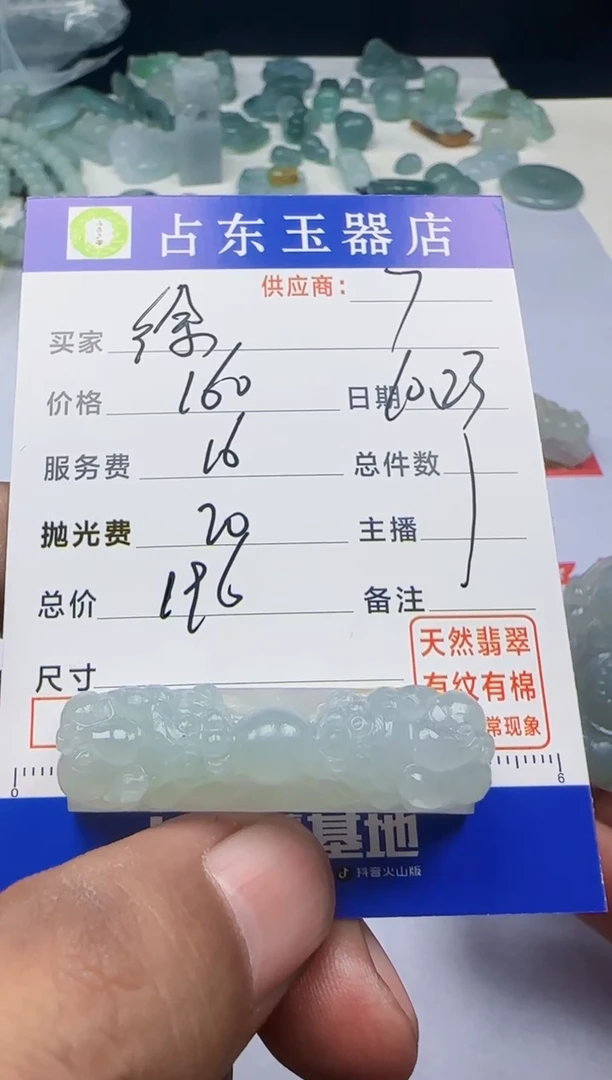 占东玉器店
供应商： 7
买家 徐
价格 160 日期 10.23
服务费 16 总件数 1
抛光费 20 主播
总价 196 备注
尺寸
天然翡翠
有纹有棉
常现象
0 6
基地
抖音火山版